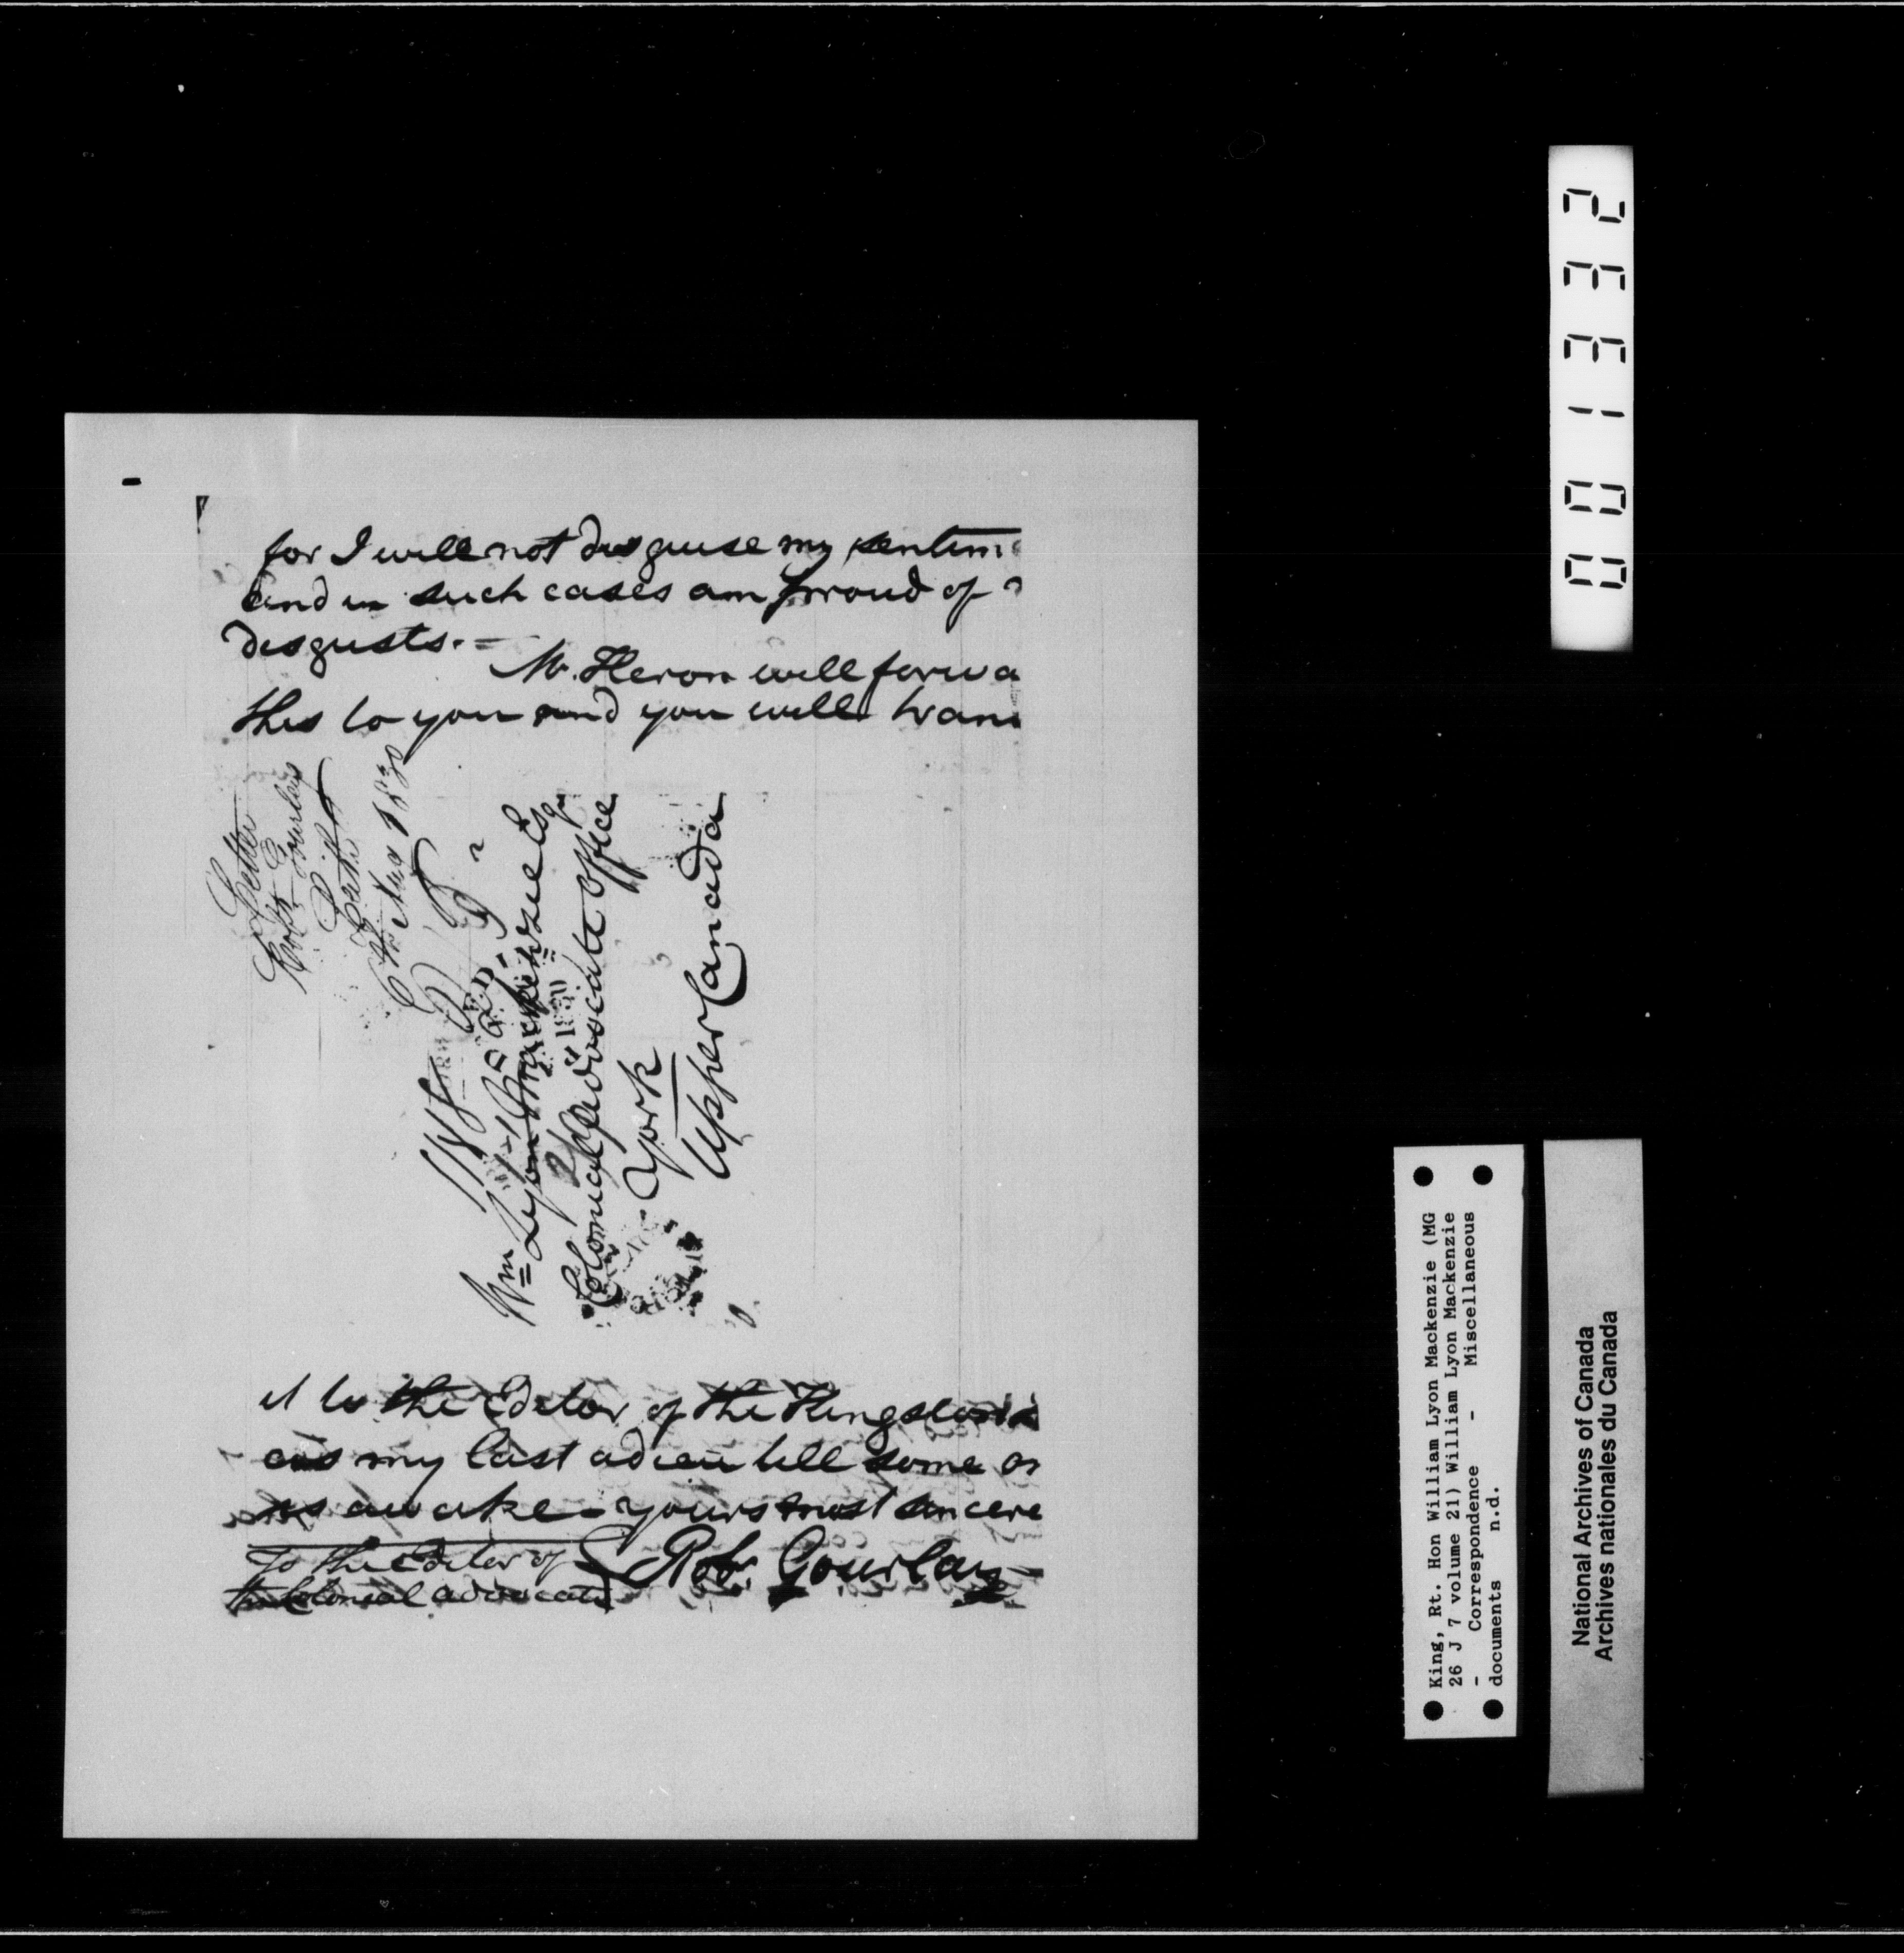 for I will not disguise my sentim
and in such cases am proud of
disgusts. -
Mr. Heron will forwa
this to you and you will trans
Letter
Robt Gourlay
Leith
May 1830
Wm Lyon Mackenzie Esqr
Colonial Advocate office
York
Upper Canada
it to the Editor of the Kingston
as my last adieu till some or
awake - yours most sincere
To the Editor of
the Colonial advocate
Rob. Gourlay
001332
King, Rt. Hon William Lyon Mackenzie (MG
26 J 7 volume 21) William Lyon Mackenzie
- Correspondence - Miscellaneous
documents n.d.
National Archives of Canada
Archives nationales du Canada